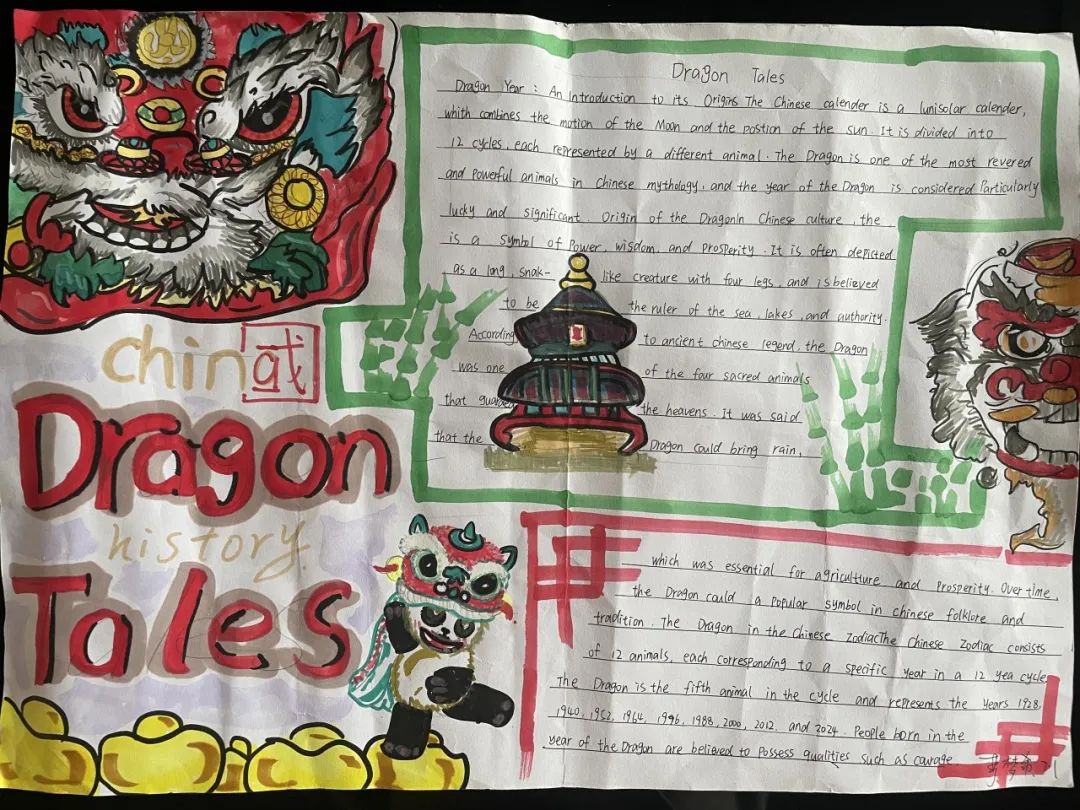 china
Dragon
history
Tales
Dragon Tales
Dragon Year : An Introduction to its Origins The Chinese calender is a lunisolar calender,
whith combines the motion of the Moon and the postion of the sun. It is divided into
12 cycles, each represented by a different animal. The Dragon is one of the most revered
and powerful animals in Chinese mythology, and the year of the Dragon is considered Particularly
lucky and significant. Origin of the DragonIn Chinese culture, the
is a symbol of Power, wisdom, and prosperity. It is often depicted
as a long, snak- like creature with four legs, and is believed
to be the ruler of the sea, lakes, and authority.
According to ancient chinese legend, the Dragon
was one of the four sacred animals
that guarded the heavens. It was said
that the Dragon could bring rain,
which was essential for agriculture and Prosperity. Over time,
the Dragon could a popular symbol in Chinese folklore and
tradition. The Dragon in the Chinese ZodiacThe Chinese Zodiac consists
of 12 animals, each corresponding to a specific year in a 12 yea cycle
The Dragon is the fifth animal in the cycle and represents the years 1928,
1940, 1952, 1964, 1996, 1988, 2000, 2012, and 2024. People born in the
year of the Dragon are believed to Possess qualities such as courage.